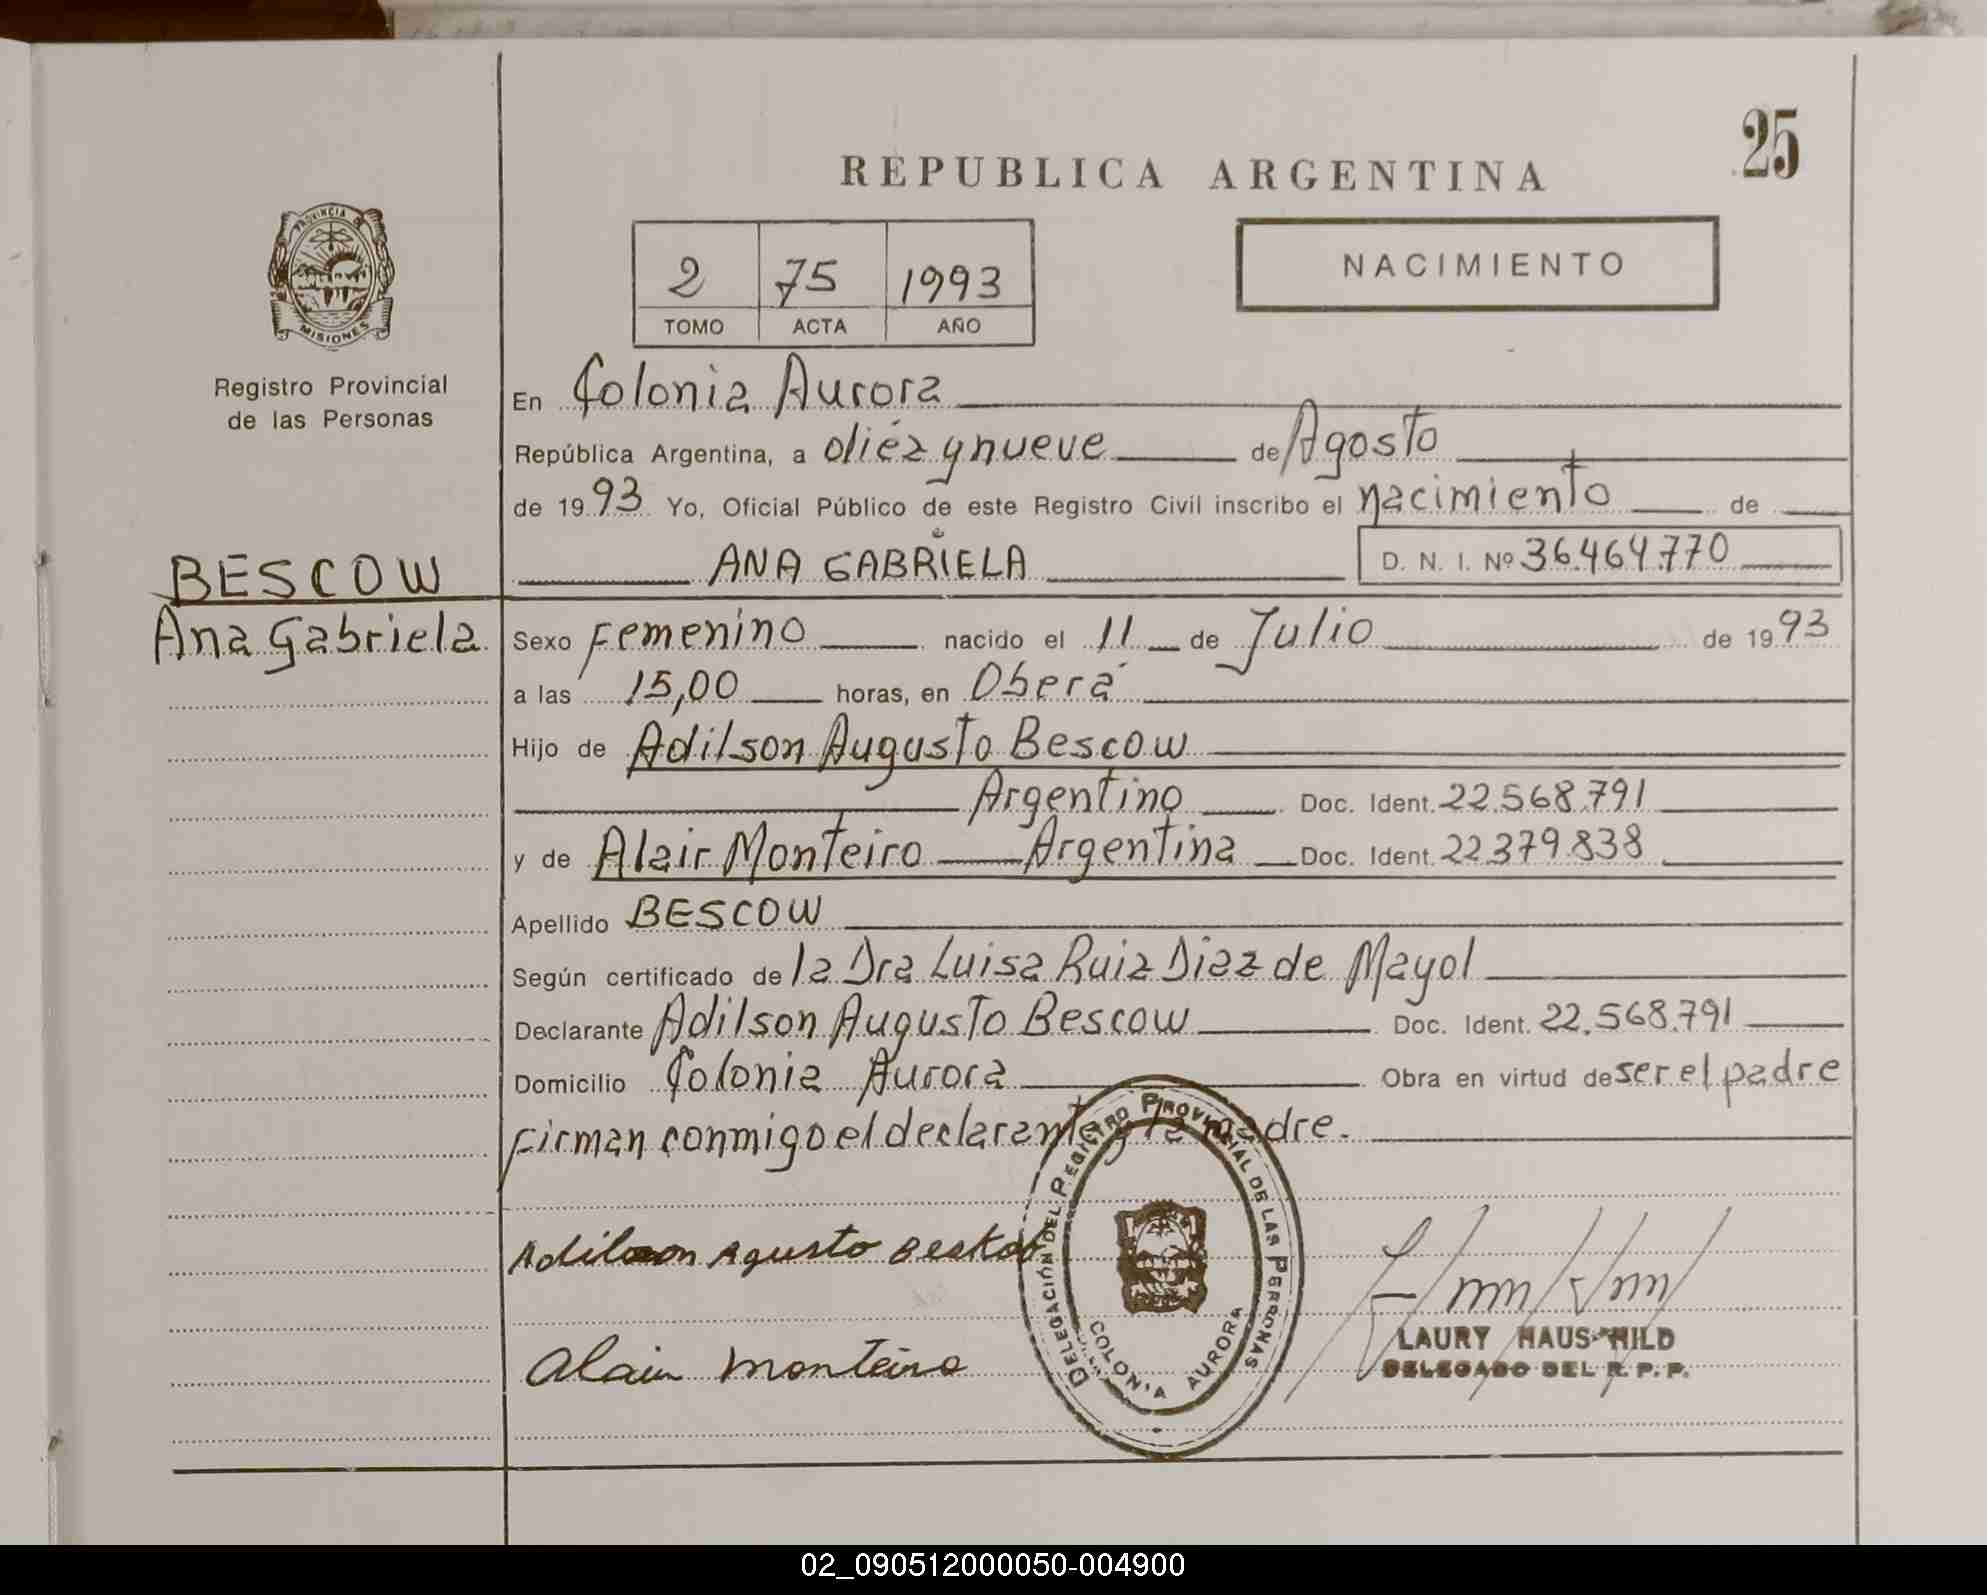 25
REPUBLICA ARGENTINA
PROVINCIA DE
MISIONES
Registro Provincial
de las Personas
2 75 1993
TOMO ACTA AÑO
NACIMIENTO
En Colonia Aurora
República Argentina, a diéz y nueve de Agosto
de 1993 Yo, Oficial Público de este Registro Civil inscribo el nacimiento de
ANA GABRIELA D. N. I. Nº 36.464.770
BESCOW
Ana Gabriela
Sexo Femenino nacido el 11 de Julio de 1993
a las 15,00 horas, en Oberá
Hijo de Adilson Augusto Bescow
Argentino Doc. Ident. 22.568.791
y de Alair Monteiro Argentina Doc. Ident. 22.379.838
Apellido BESCOW
Según certificado de la Dra Luisa Ruiz Diaz de Mayol
Declarante Adilson Augusto Bescow Doc. Ident. 22.568.791
Domicilio Colonia Aurora Obra en virtud de ser el padre
Firman conmigo el declarante y la madre.
Adilson Agusto Beskow
Alair Monteiro
DELEGACIÓN DEL REGISTRO PROVINCIAL DE LAS PERSONAS
COLONIA AURORA
LAURY HAUSCHILD
DELEGADO DEL R.P.P.
02_090512000050-004900